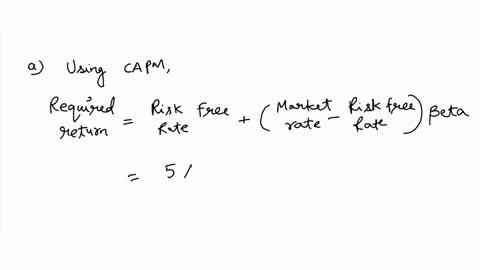 a) Using CAPM,
Required return = Risk Free Rate + (Market rate - Risk free Rate) Beta
= 5 /